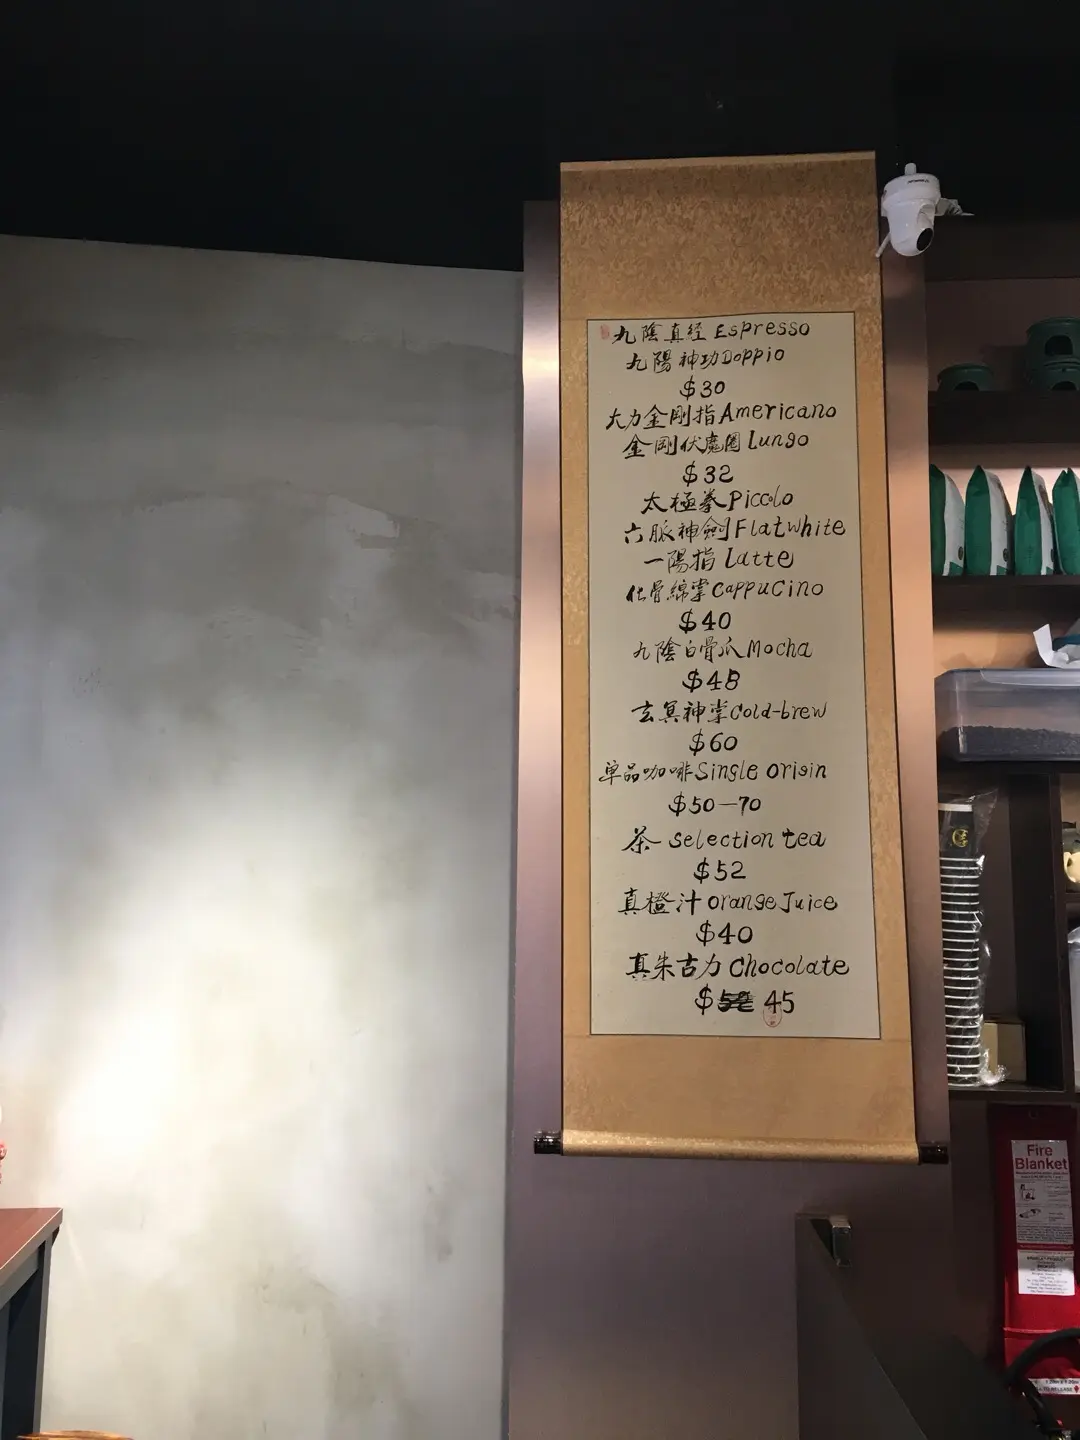 九陰真経 Espresso
九陽神功 Doppio
$30
大力金剛指 Americano
金剛伏魔圈 Lungo
$32
太極拳 Piccolo
六脈神劍 Flatwhite
一陽指 Latte
化骨綿掌 Cappucino
$40
九陰白骨爪 Mocha
$48
玄冥神掌 Cold-brew
$60
单品咖啡 Single origin
$50-70
茶 selection tea
$52
真橙汁 orange Juice
$40
真朱古力 Chocolate
$52 45
Fire
Blanket